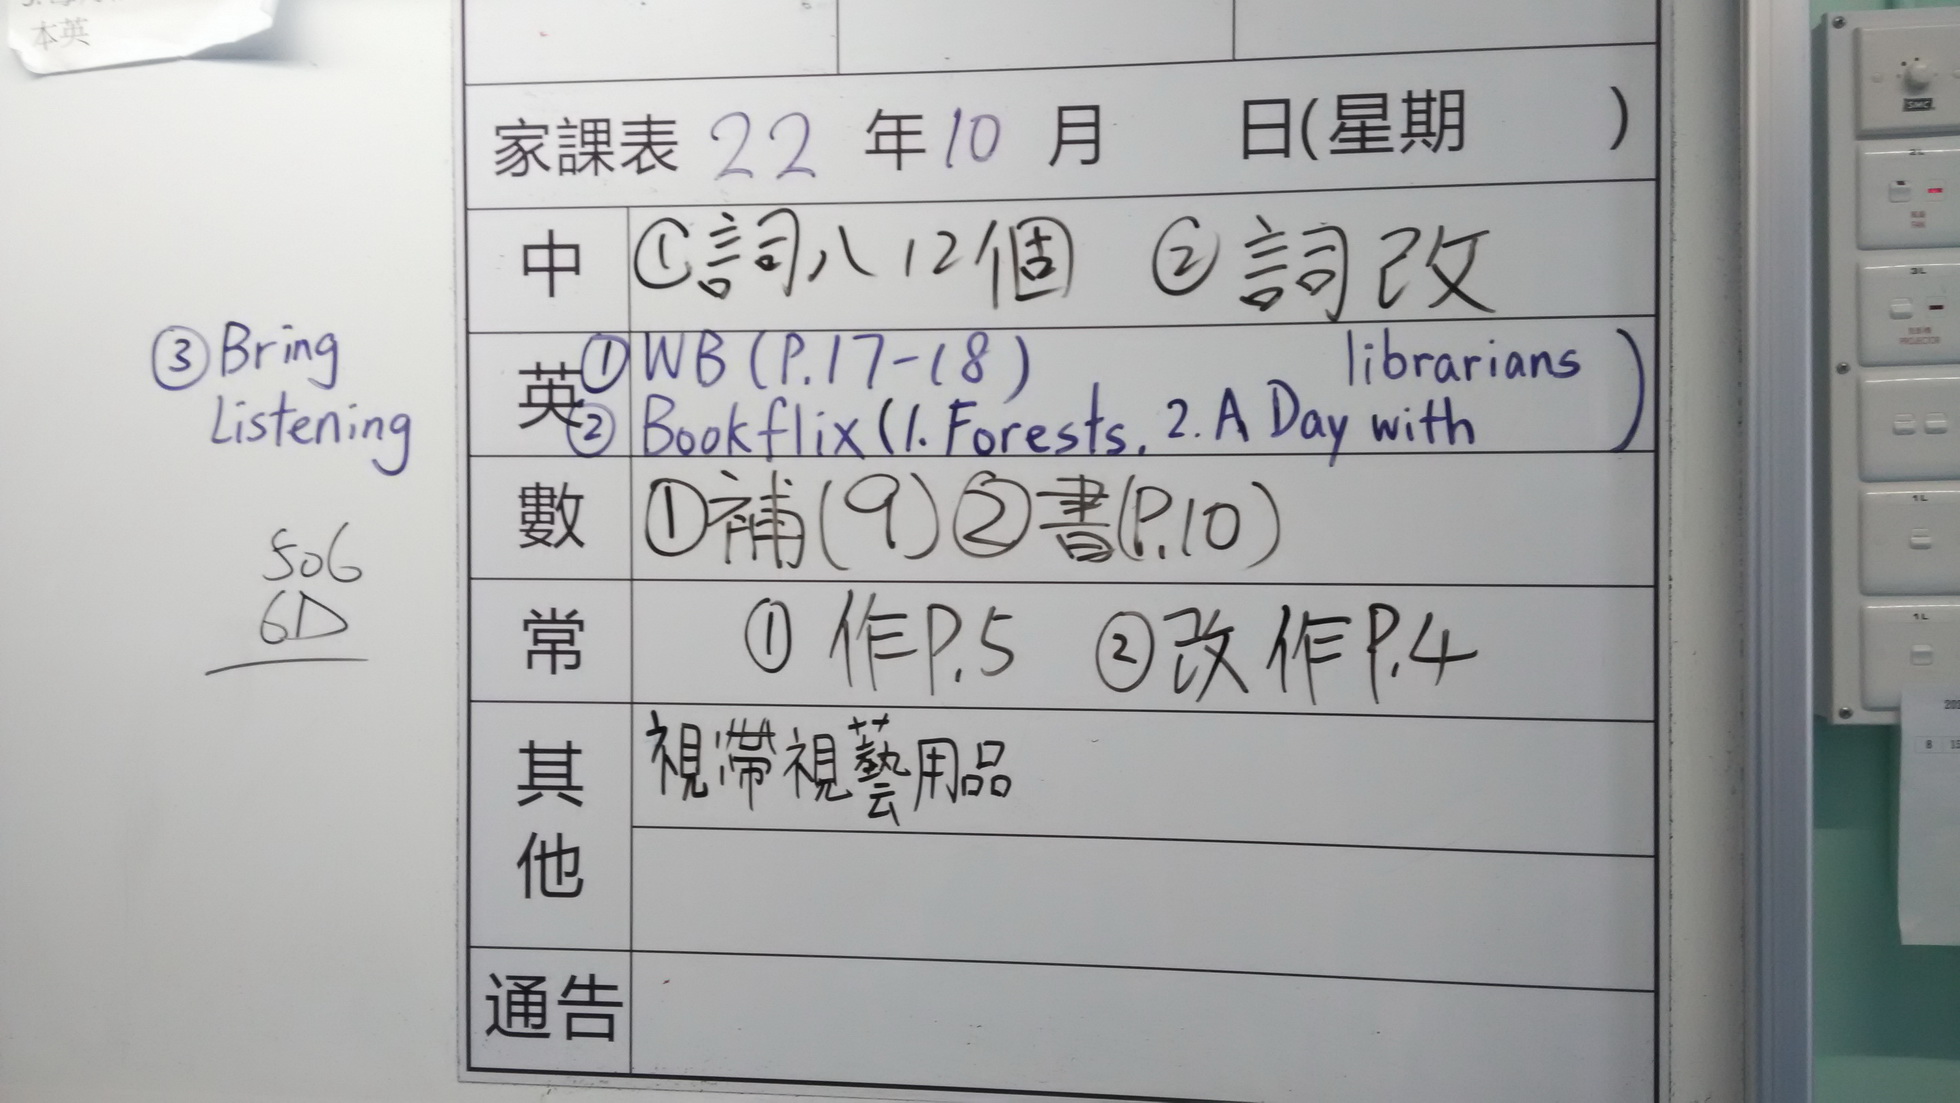 本英
家課表 22 年 10 月 日(星期 )
中 ①詞八12個 ②詞改
英 ① WB (P.17-18) librarians
② Bookflix (1. Forests, 2. A Day with )
③ Bring
Listening
數 ①補(9) ②書(P.10)
506
6D
常 ① 作P.5 ② 改作P.4
其他 視滯視藝用品
通告
SMC
2L
3L
PROJECTOR
1L
1L
8 15